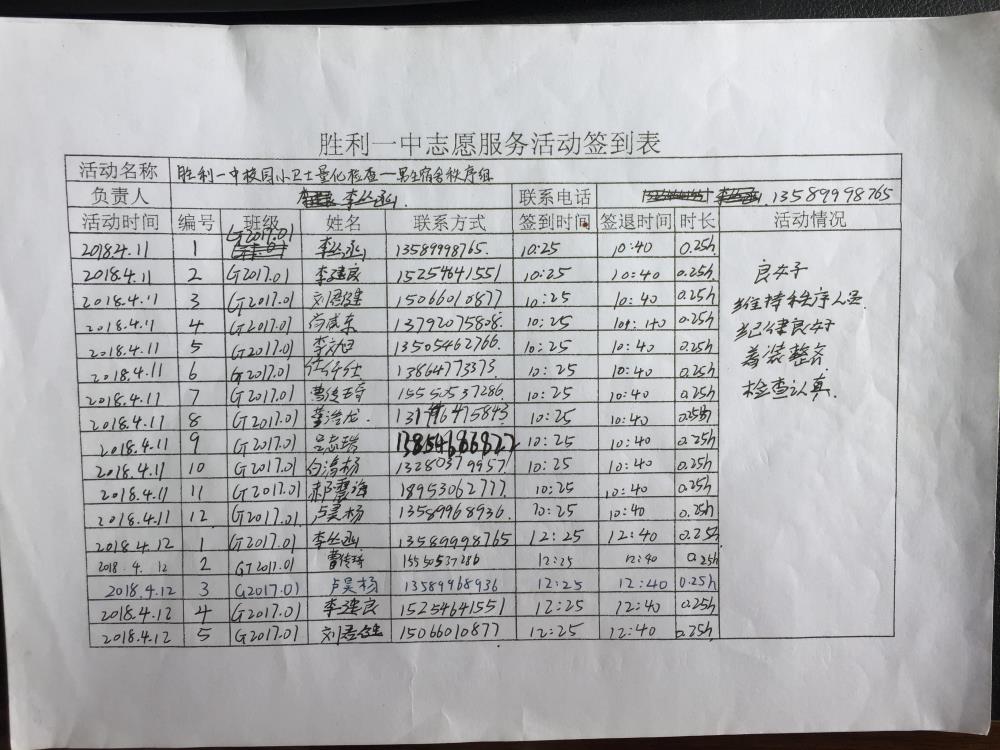 胜利一中志愿服务活动签到表
活动名称 胜利一中校园小卫士量化检查一男生宿舍秩序组
负责人 李丛函 联系电话 13589998765
活动时间 编号 班级 姓名 联系方式 签到时间 签退时间 时长 活动情况
2018.4.11 1 G2017.01 李丛函 13589998765. 10:25 10:40 0.25h
2018.4.11 2 G2017.01 李建良 15254641551 10:25 10:40 0.25h 良好
2018.4.11 3 G2017.01 刘君健 15066010877 10:25 10:40 0.25h 维持秩序人员
2018.4.11 4 G2017.01 尚威东 13792075808. 10:25 10:40 0.25h 纪律良好
2018.4.11 5 G2017.01 13505462766. 10:25 10:40 0.25h 着装整齐
2018.4.11 6 G2017.01 13864773373. 10:25 10:40 0.25h 检查认真.
2018.4.11 7 G2017.01 15550537286. 10:25 10:40 0.25h
2018.4.11 8 G2017.01 10:25 10:40 0.25h
2018.4.11 9 G2017.01 吕志瑞 10:25 10:40 0.25h
2018.4.11 10 G2017.01 13280379957 10:25 10:40 0.25h
2018.4.11 11 G2017.01 18953062777. 10:25 10:40 0.25h
2018.4.11 12 G2017.01 卢昊杨 13589968936. 10:25 10:40 0.25h
2018.4.12 1 G2017.01 李丛函 13589998765 12:25 12:40 0.25h
2018.4.12 2 G2017.01 15550537286 12:25 12:40 0.25h
2018.4.12 3 G2017.01 卢昊杨 13589968936 12:25 12:40 0.25h
2018.4.12 4 G2017.01 李建良 15254641551 12:25 12:40 0.25h
2018.4.12 5 G2017.01 刘君健 15066010877 12:25 12:40 0.25h